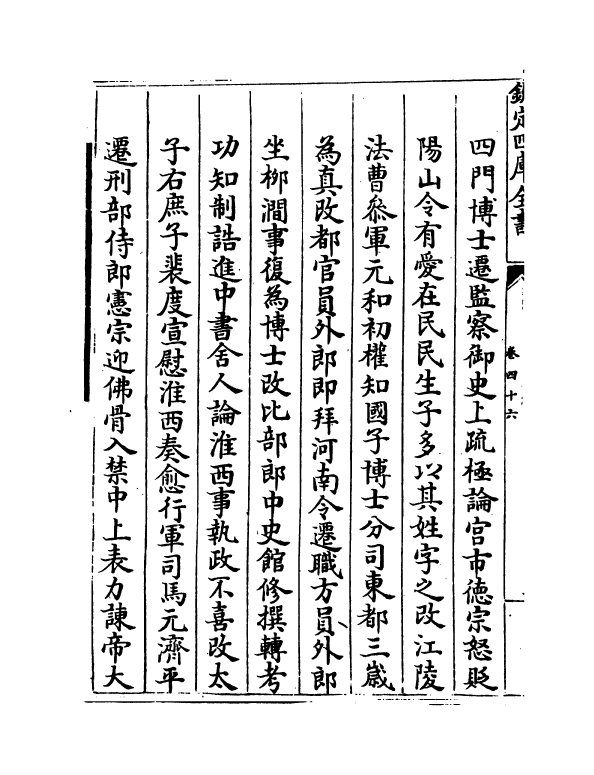 欽定四庫全書
卷四十六
四門博士遷監察御史上疏極論宫市德宗怒貶
陽山令有愛在民民生子多以其姓字之改江陵
法曹參軍元和初權知國子博士分司東都三歲
為真改都官員外郎即拜河南令遷職方員外郎
坐柳澗事復為博士改比部郎中史館修撰轉考
功知制誥進中書舍人論淮西事執政不喜改太
子右庶子裴度宣慰淮西奏愈行軍司馬元濟平
遷刑部侍郎憲宗迎佛骨入禁中上表力諫帝大